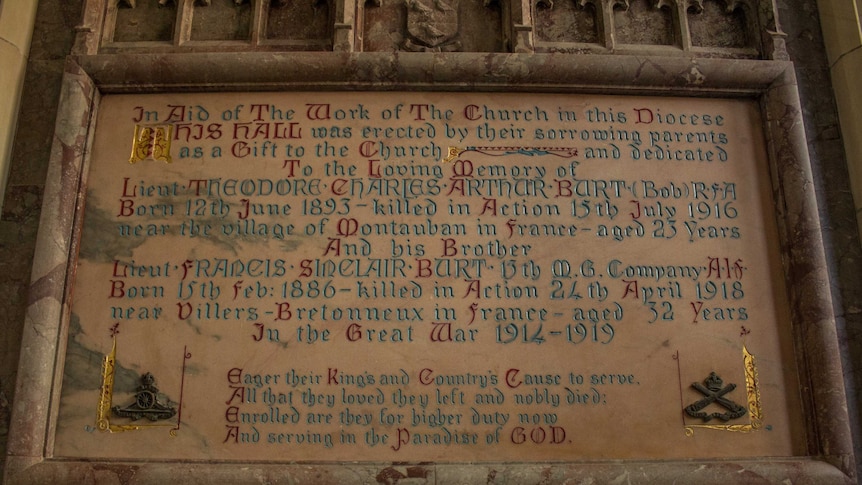 In Aid of The Work of The Church in this Diocese
THIS HALL was erected by their sorrowing parents
as a Gift to the Church and dedicated
To the Loving Memory of
Lieut·THEODORE·CHARLES·ARTHUR·BURT·(Bob)RFA
Born 12th June 1893–killed in Action 15th July 1916
near the village of Montauban in France–aged 23 Years
And his Brother
Lieut·FRANCIS·SINCLAIR·BURT·15th M.G. Company·A·I·F·
Born 15th Feb: 1886–killed in Action 24th April 1918
near Villers–Bretonneux in France–aged 32 Years
In the Great War 1914–1919
Eager their King's and Country's Cause to serve,
All that they loved they left and nobly died;
Enrolled are they for higher duty now
And serving in the Paradise of GOD.